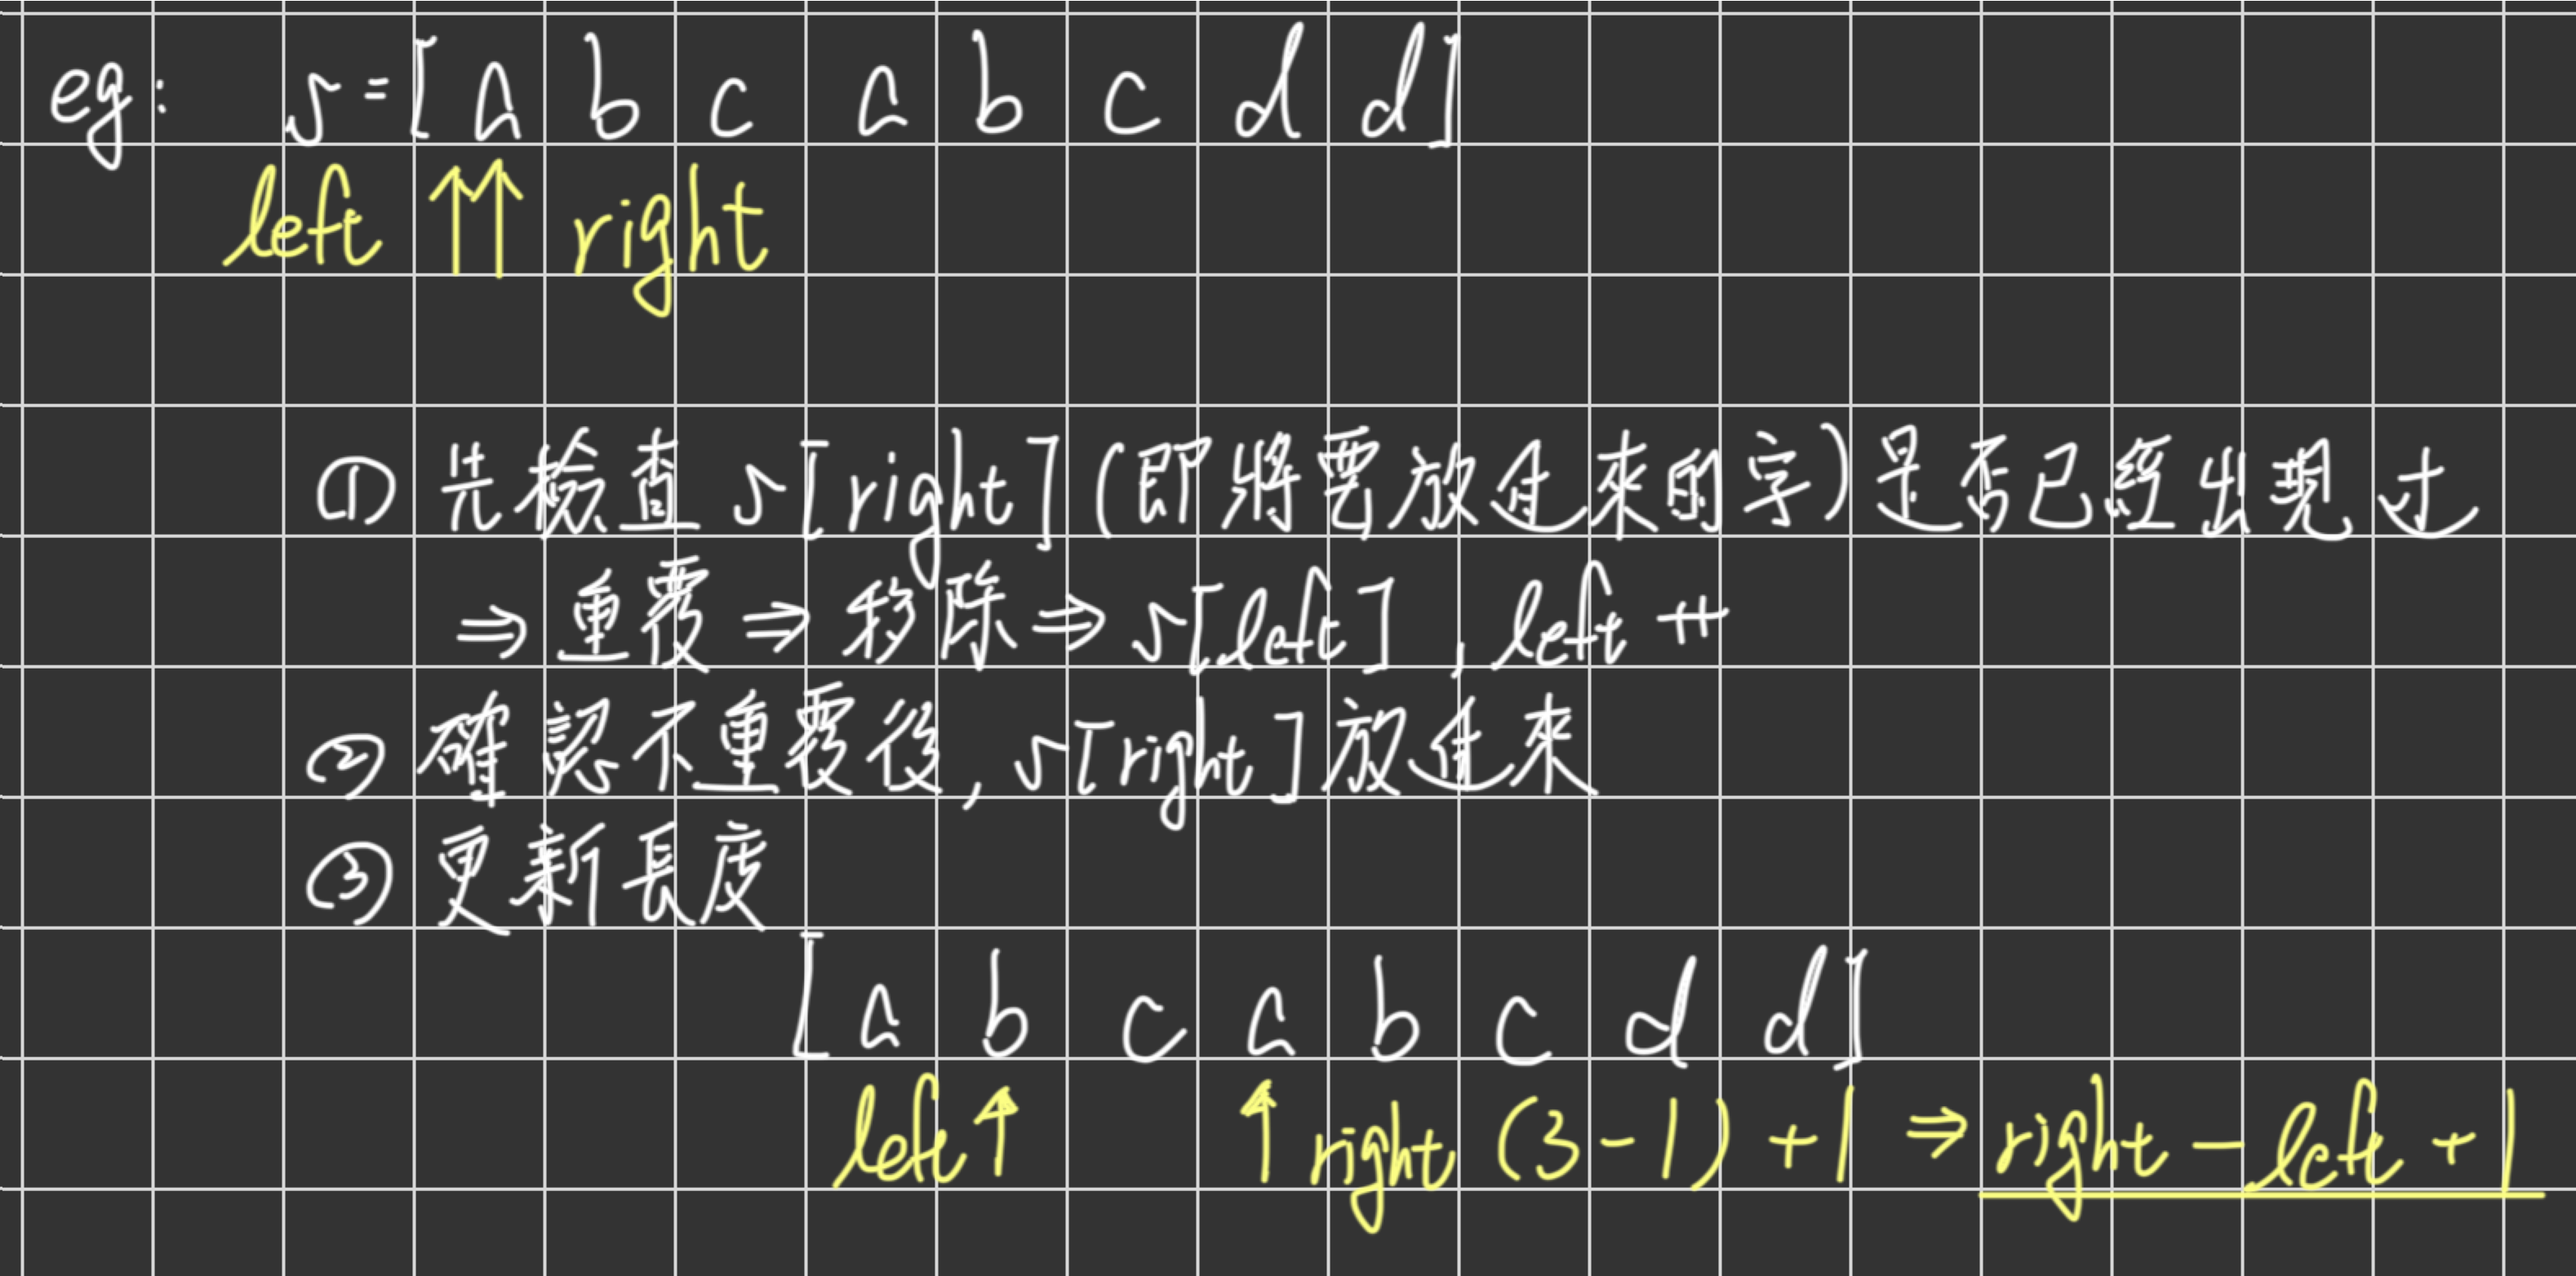 eg: s=[a b c a b c d d]
left ↑↑ right
① 先檢查 s[right] (即將要放進來的字) 是否已經出現过
⇒ 重覆 ⇒ 移除 ⇒ s[left], left ++
② 確認不重覆後, s[right] 放進來
③ 更新長度
[a b c a b c d d]
left ↑ ↑ right (3-1) +1 ⇒ right - left + 1